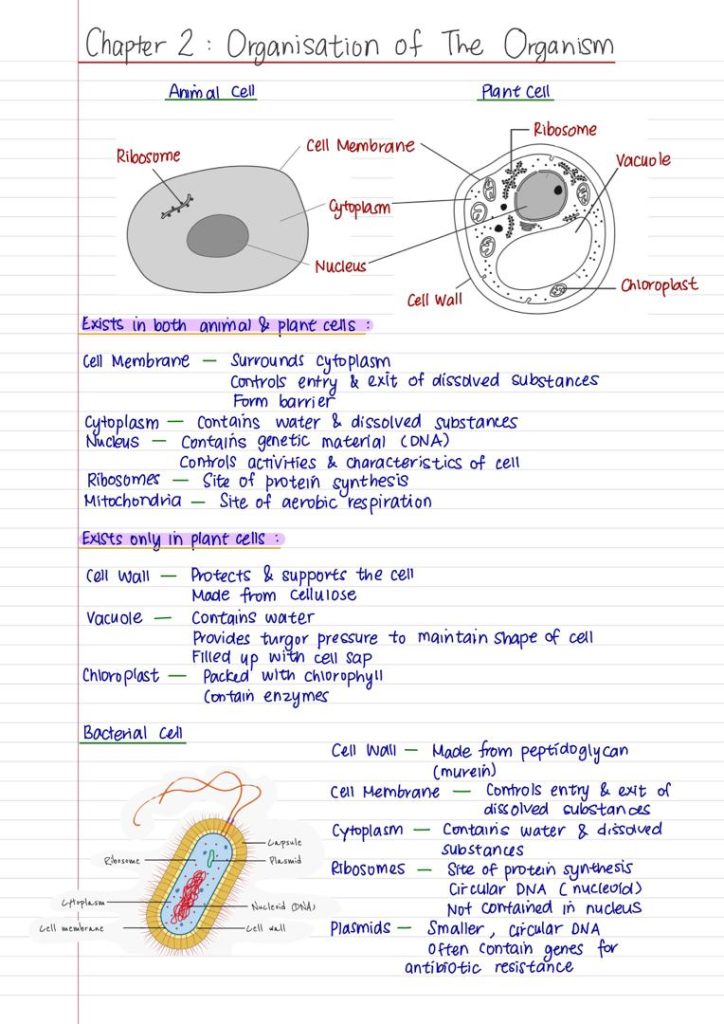 Chapter 2 : Organisation of The Organism
Animal Cell
Plant Cell
Ribosome
Cell Membrane
Ribosome
Vacuole
Cytoplasm
Nucleus
Chloroplast
Cell Wall
Exists in both animal & plant cells :
Cell Membrane — Surrounds cytoplasm
Controls entry & exit of dissolved substances
Form barrier
Cytoplasm — Contains water & dissolved substances
Nucleus — Contains genetic material (DNA)
Controls activities & characteristics of cell
Ribosomes — Site of protein synthesis
Mitochondria — Site of aerobic respiration
Exists only in plant cells :
Cell Wall — Protects & supports the cell
Made from cellulose
Vacuole — Contains water
Provides turgor pressure to maintain shape of cell
Filled up with cell sap
Chloroplast — Packed with chlorophyll
Contain enzymes
Bacterial Cell
Capsule
Ribosome
Plasmid
Cytoplasm
Nucleoid (DNA)
Cell membrane
Cell wall
Cell Wall — Made from peptidoglycan
(murein)
Cell Membrane — Controls entry & exit of
dissolved substances
Cytoplasm — Contains water & dissolved
substances
Ribosomes — Site of protein synthesis
Circular DNA (nucleoid)
Not contained in nucleus
Plasmids — Smaller, circular DNA
Often contain genes for
antibiotic resistance